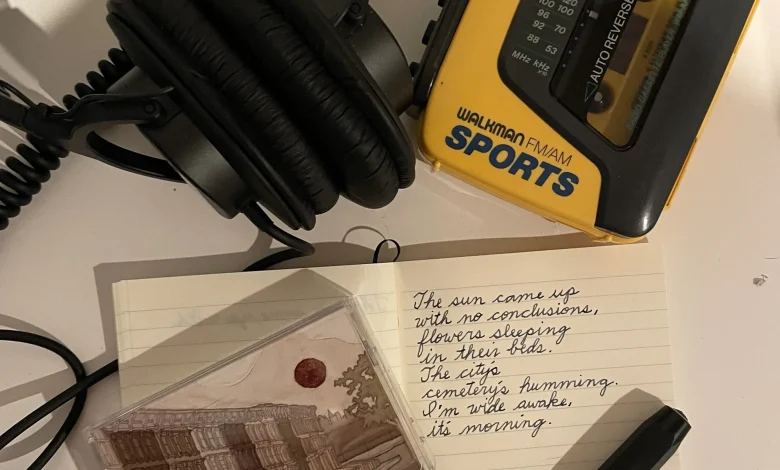 120
100 100
96 70
92
88 53
MHz kHz
AUTO REVERSE
WALKMAN FM/AM
SPORTS
The sun came up
with no conclusions,
flowers sleeping
in their beds.
The city's
cemetery's humming.
I'm wide awake,
it's morning.